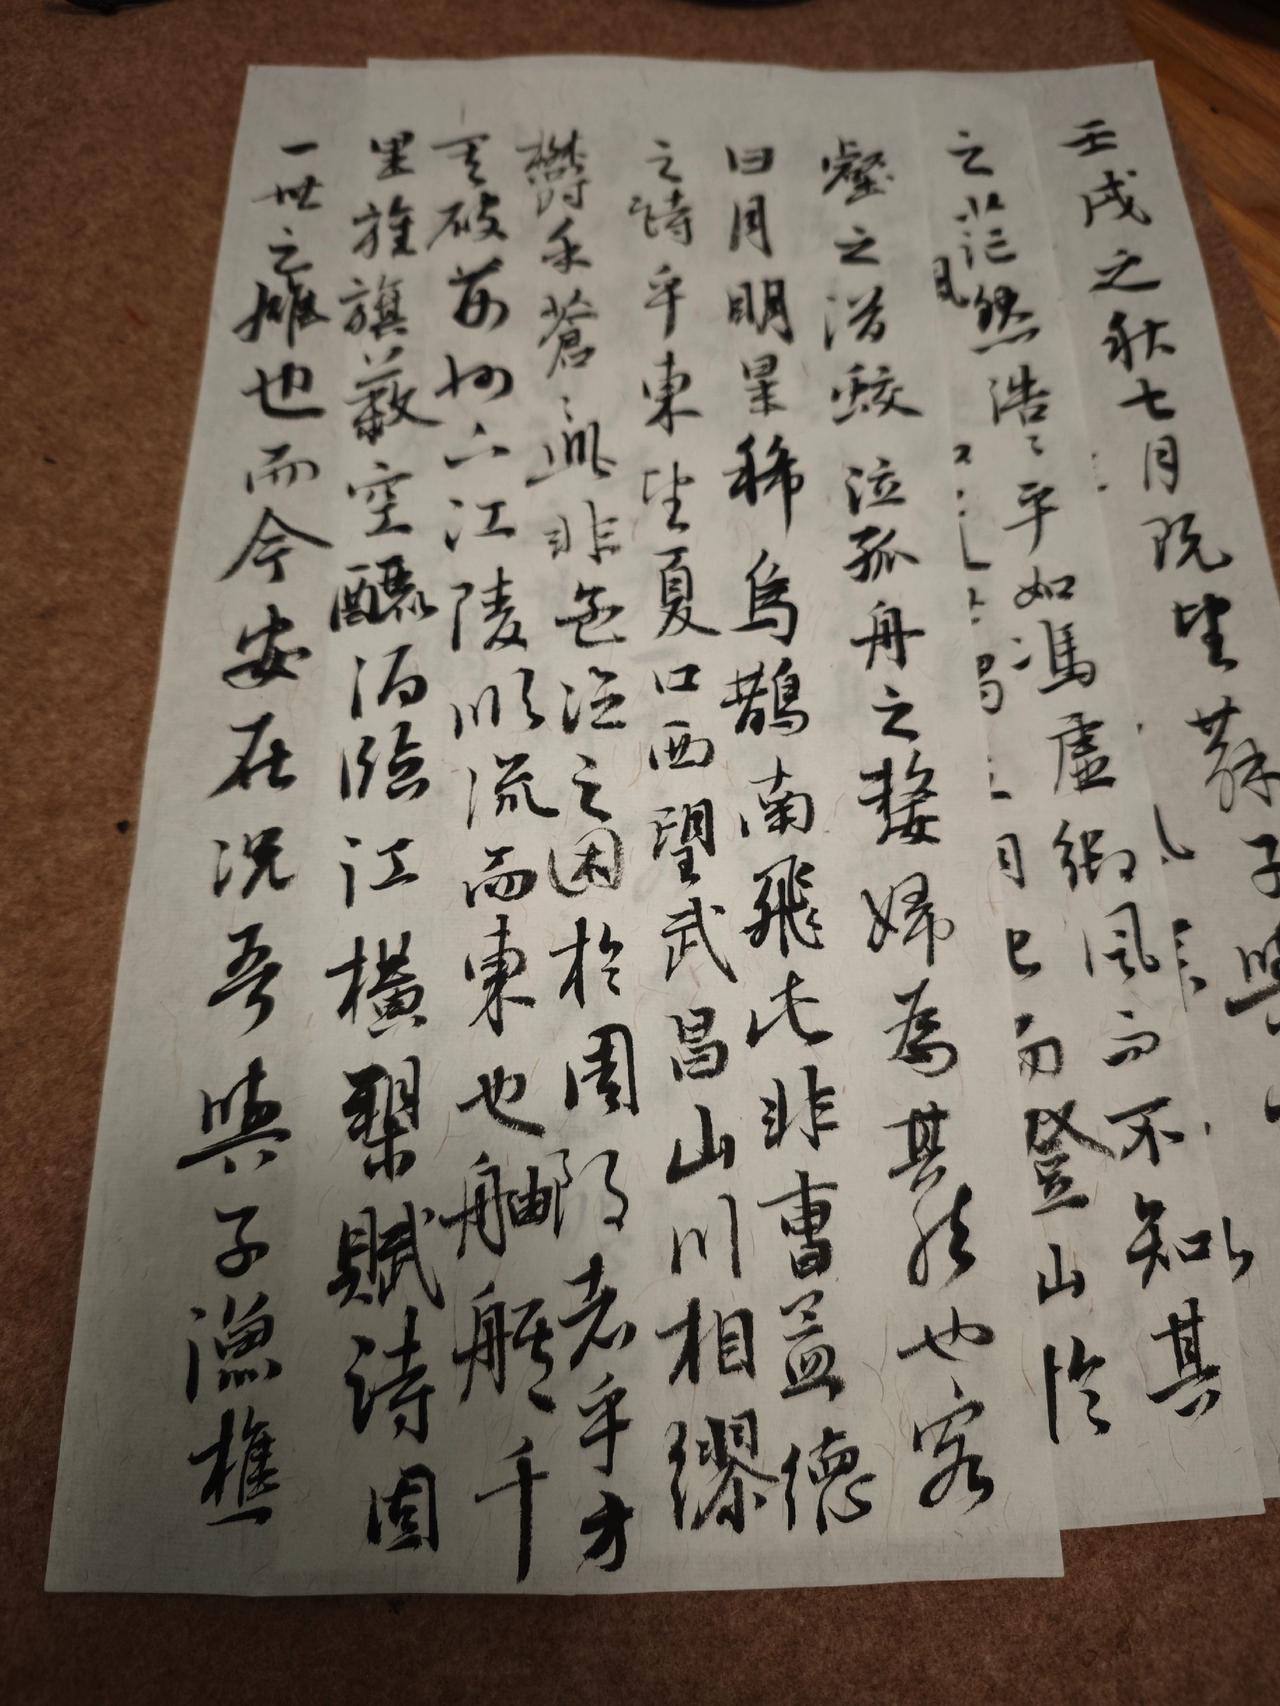 壬戌之秋七月既望蘇子與
之茫然浩〻乎如馮虛御風而不知其
壑之潛蛟泣孤舟之嫠婦為其然也客
曰月明星稀烏鵲南飛此非曹孟德
之詩乎東望夏口西望武昌山川相繆
鬱乎蒼〻此非孟德之困於周郎者乎方
其破荊州下江陵順流而東也舳艫千
里旌旗蔽空釃酒臨江橫槊賦詩固
一世之雄也而今安在況吾與子漁樵